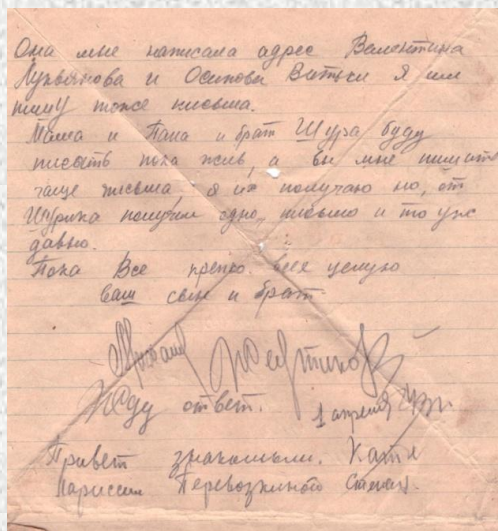 Она мне написала адрес Валентина
Лукьянова и Осипова Витьки я им
пишу тоже письма.
Мама и Папа и брат Шура буду
писать пока жив, а вы мне пишите
чаще письма я их получаю но, от
Шурика получил одно, письмо и то уж
давно.
Пока Все крепко всех целую
ваш сын и брат
Жду ответ. 1 апреля
Привет знакомым. Кате
Ларисии Перевозкиного